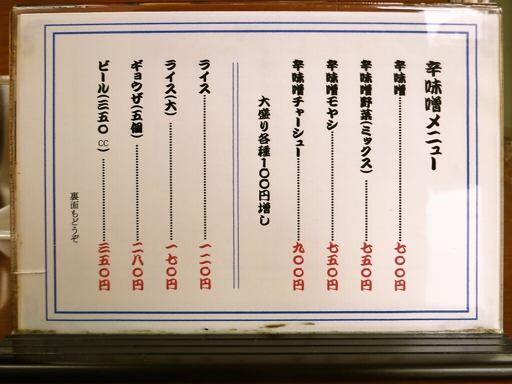 辛味噌メニュー
辛味噌 七〇〇円
辛味噌野菜(ミックス) 七五〇円
辛味噌モヤシ 七五〇円
辛味噌チャーシュー 九〇〇円
大盛り各種100円増し
ライス 一二〇円
ライス(大) 一七〇円
ギョウザ(五個) 二八〇円
ビール(三五〇cc) 三五〇円
裏面もどうぞ